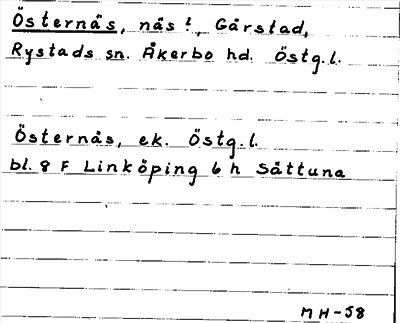 Östernäs, näs ?, Gärstad,
Rystads sn. Åkerbo hd. Östg.l.
Östernäs, ek. Östg.l.
bl. 8 F Linköping 6 h Sättuna
MH-58